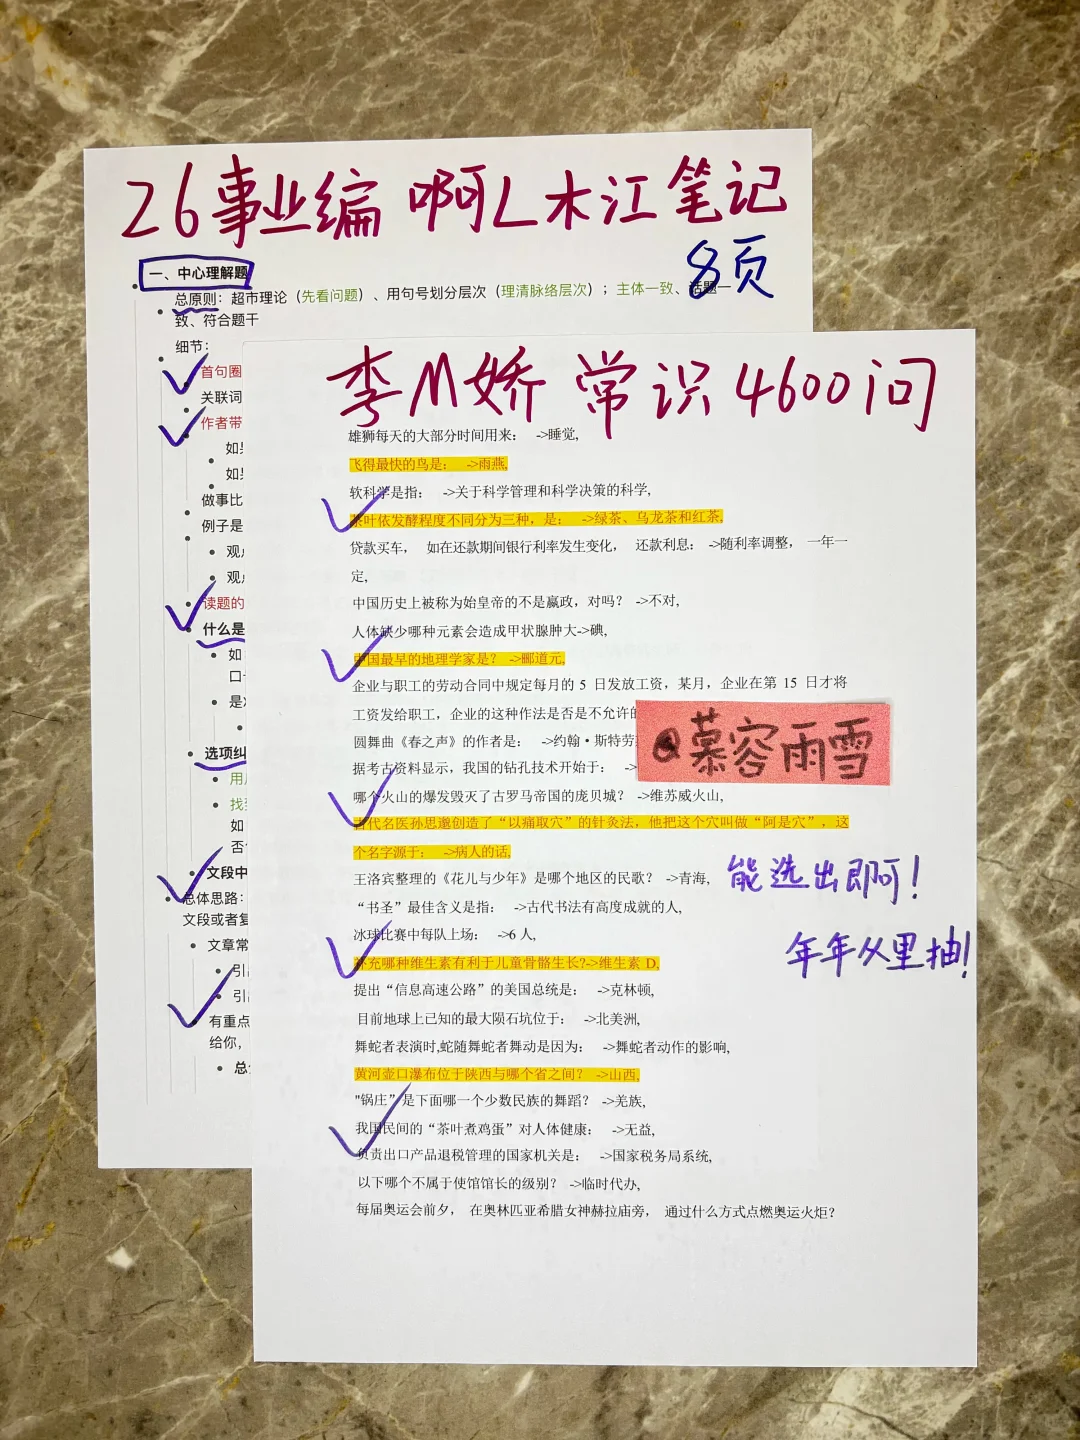 26事业编 啊L木江笔记
8页
一、中心理解题
总原则：超市理论（先看问题）、用句号划分层次（理清脉络层次）；主体一致、话题一
致、符合题干
细节：
首句圈
关联词
作者带
如果
如果
做事比
例子是
观点
观点
读题的
什么是
如
口
是
选项纠
用
找
如
否
文段中
总体思路：
文段或者复
文章常
引出
引出
有重点
给你，
总
李M娇 常识4600问
雄狮每天的大部分时间用来： ->睡觉,
飞得最快的鸟是： ->雨燕,
软科学是指： ->关于科学管理和科学决策的科学,
茶叶依发酵程度不同分为三种，是： ->绿茶、乌龙茶和红茶,
贷款买车， 如在还款期间银行利率发生变化， 还款利息： ->随利率调整， 一年一
定,
中国历史上被称为始皇帝的不是嬴政，对吗？ ->不对,
人体缺少哪种元素会造成甲状腺肿大->碘,
中国最早的地理学家是？ ->郦道元,
企业与职工的劳动合同中规定每月的 5 日发放工资，某月，企业在第 15 日才将
工资发给职工，企业的这种作法是否是不允许的
圆舞曲《春之声》的作者是： ->约翰·斯特劳
据考古资料显示，我国的钻孔技术开始于： ->
@慕容雨雪
哪个火山的爆发毁灭了古罗马帝国的庞贝城？ ->维苏威火山,
古代名医孙思邈创造了“以痛取穴”的针灸法，他把这个穴叫做“阿是穴”，这
个名字源于： ->病人的话,
王洛宾整理的《花儿与少年》是哪个地区的民歌？ ->青海,
能选出即可！
“书圣”最佳含义是指： ->古代书法有高度成就的人,
冰球比赛中每队上场： ->6 人,
年年从里抽！
补充哪种维生素有利于儿童骨骼生长?->维生素 D,
提出“信息高速公路”的美国总统是： ->克林顿,
目前地球上已知的最大陨石坑位于： ->北美洲,
舞蛇者表演时,蛇随舞蛇者舞动是因为： ->舞蛇者动作的影响,
黄河壶口瀑布位于陕西与哪个省之间？ ->山西,
"锅庄”是下面哪一个少数民族的舞蹈？ ->羌族,
我国民间的“茶叶煮鸡蛋”对人体健康： ->无益,
负责出口产品退税管理的国家机关是： ->国家税务局系统,
以下哪个不属于使馆馆长的级别？ ->临时代办,
每届奥运会前夕， 在奥林匹亚希腊女神赫拉庙旁， 通过什么方式点燃奥运火炬？